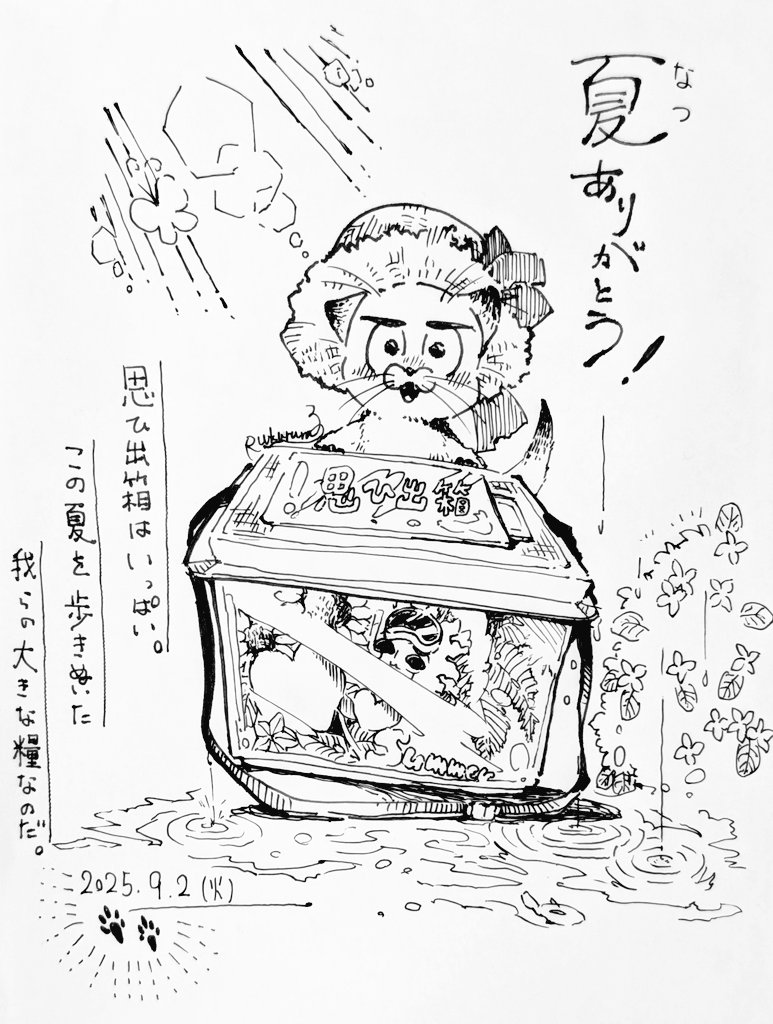 夏ありがとう!
なつ
思ひ出箱はいっぱい。
この夏を歩きぬいた
我らの大きな糧なのだ。
!思ひ出箱
Summer
2025.9.2(火)